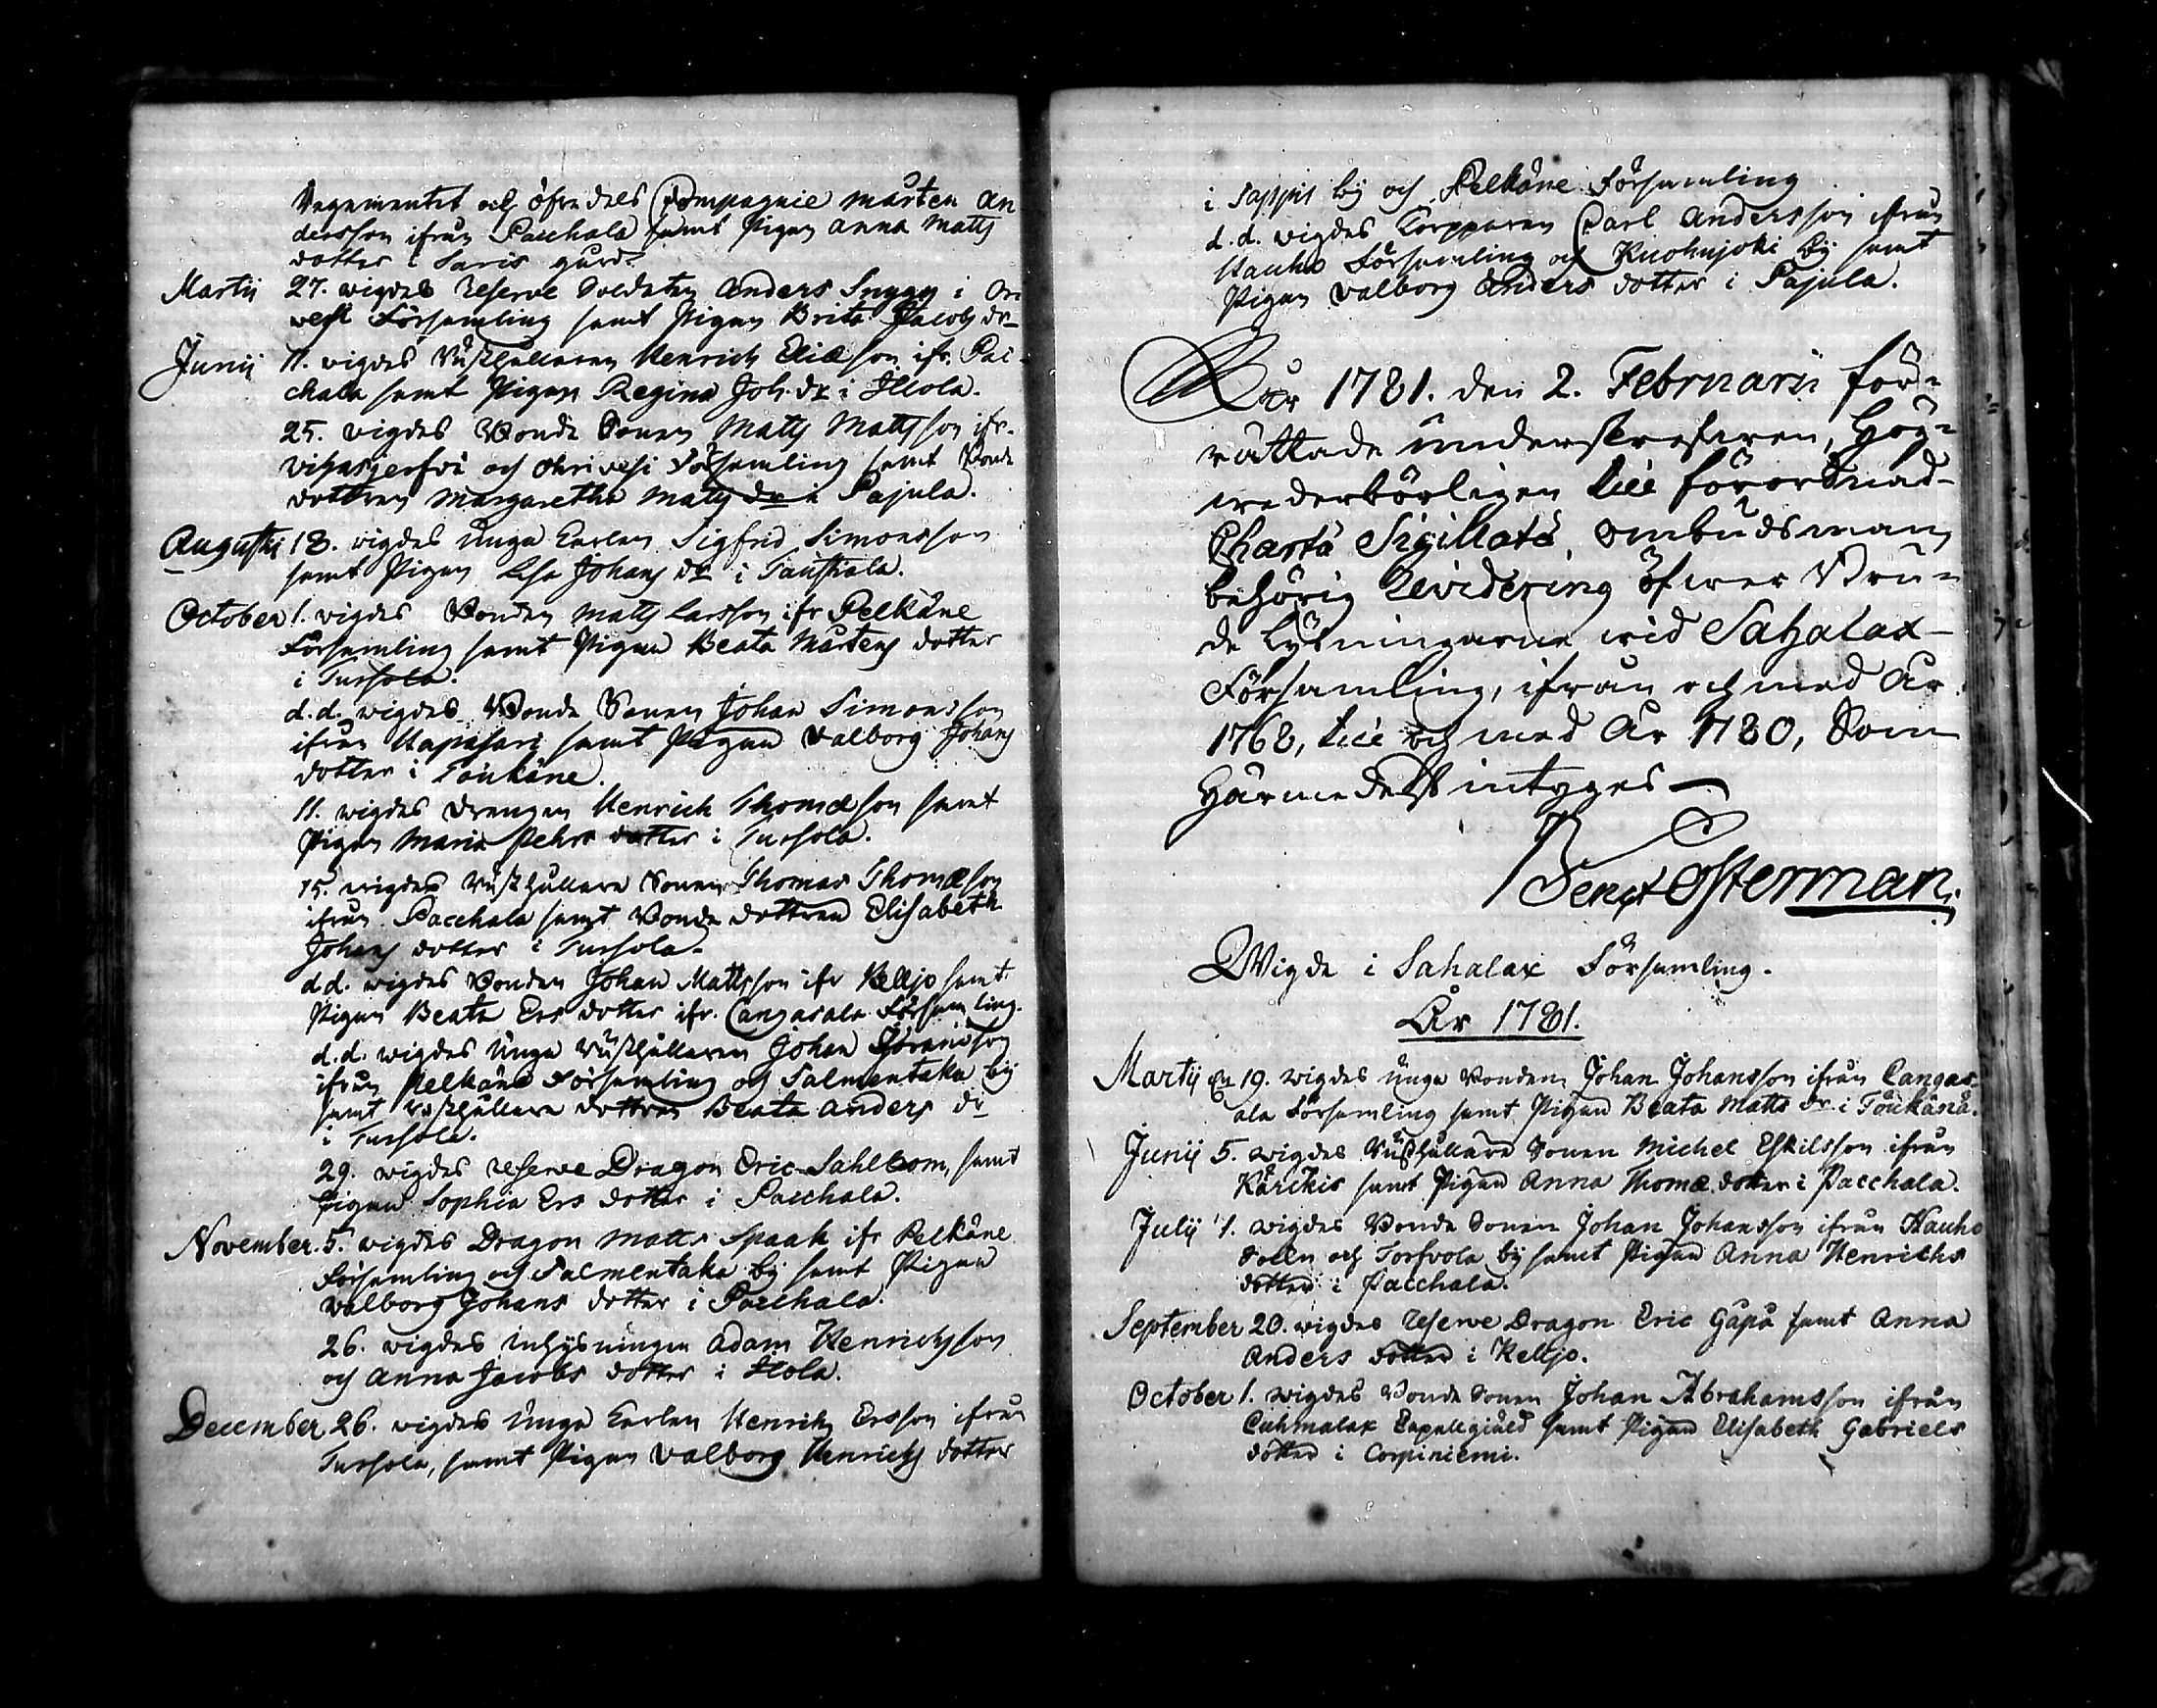 Regementet och öfredels Compagnie Mårten An
dersson ifrån Pacchala samt Pigan Anna Matts
dotter i Saris gård.
Martii 27. wigdes Reserve Soldaten Anders Snygg i Ori
wesi Församling samt Pigan Brita Jacobs dr
Junii 11. wigdes Rusthållaren Henrich Eliæson ifr. Pac-
chala samt Pigan Regina Joh. dr i Ilola.
25. wigdes Bonde Sonen Matts Mattsson ifr.
Vihasjerfvi och Orivesi Församling samt Bonde
dottren Margaretha Matts dr i Pajula.
Augusti 18. wigdes Unga Karlen Sigfred Simonsson
samt Pigan Lisa Johans dr i Taustiala.
October 1. wigdes Bonden Matts Larsson ifr Pelkäne
Församling samt Pigan Beata Mårtens dotter
i Tursola.
d.d. wigdes Bonde Sonen Johan Simonsson
ifrån Hapasari samt Pigan Valborg Johans
dotter i Toukäne.
11. wigdes Drengen Henrich Thomæson samt
Pigan Maria Pehrs dotter i Tursola.
15. wigdes Rusthållare Sonen Thomas Thomæson
ifrån Pacchala samt Bonde dottren Elisabeth
Johans dotter i Tursola.
d.d. wigdes Bonden Johan Mattsson ifr Kelljo samt
Pigan Beata Ers dotter ifr. Cangasala Församling.
d.d. wigdes Unga Rusthållaren Johan
ifrån Pelkäne Församling och Salmentaka by
samt Rusthållare dottren Beata Anders dr
i Tursola.
29. wigdes Reserve Dragon Eric Sahlbom, samt
Pigan Sophia Ers dotter i Pacchala.
November. 5. wigdes Dragon Matts Spaak ifr Pelkäne
Församling och Salmentaka by samt Pigan
Valborg Johans dotter i Pacchala.
26. wigdes Inhysningen Adam Henrichsson
och Anna Jacobs dotter i Ilola.
December. 26. wigdes Unga Karlen Henrich Ersson ifrån
Tursola, samt Pigan Valborg Henrichs dotter
i Sappis by och Pelkäne Församling
d.d. wigdes Torpparen Carl Andersson ifrån
Hauho Församling och Kuohujoki by samt
Pigan Valborg Anders dotter i Pajula.
År 1781. den 2. Februarii för-
rättade underskrefwen, Hög-
wederbörligen till förordnad
Chartæ Sigillatæ Ombudsman,
behörig Revidering öfwer Bru-
de Lysningarne wid Sahalax
Församling, ifrån och med År
1768, till och med År 1780, Som
härmedelst intyges
Bengt Osterman.
Wigde i Sahalax Församling.
År 1781.
Martii den 19. wigdes Unga Bonden Johan Johansson ifrån Cangas-
ala Församling samt Pigan Beata Matts dr i Toukäne.
Junii 5. wigdes Rusthållare Sonen Michel Eskilsson ifrån
Kärikis samt Pigan Anna Thomæ dotter i Pacchala.
Julii 1. wigdes Bonde Sonen Johan Johansson ifrån Hauho
Solln och Torfvola by samt Pigan Anna Henrichs
dotter i Pacchala.
September 20. wigdes Reserve Dragon Eric Gåpå samt Anna
Anders dotter i Kelljo.
October 1. wigdes Bonde Sonen Johan Abrahamsson ifrån
Cuhmalax Capellgiäld samt Pigan Elisabeth Gabriels
dotter i Corpiniemi.